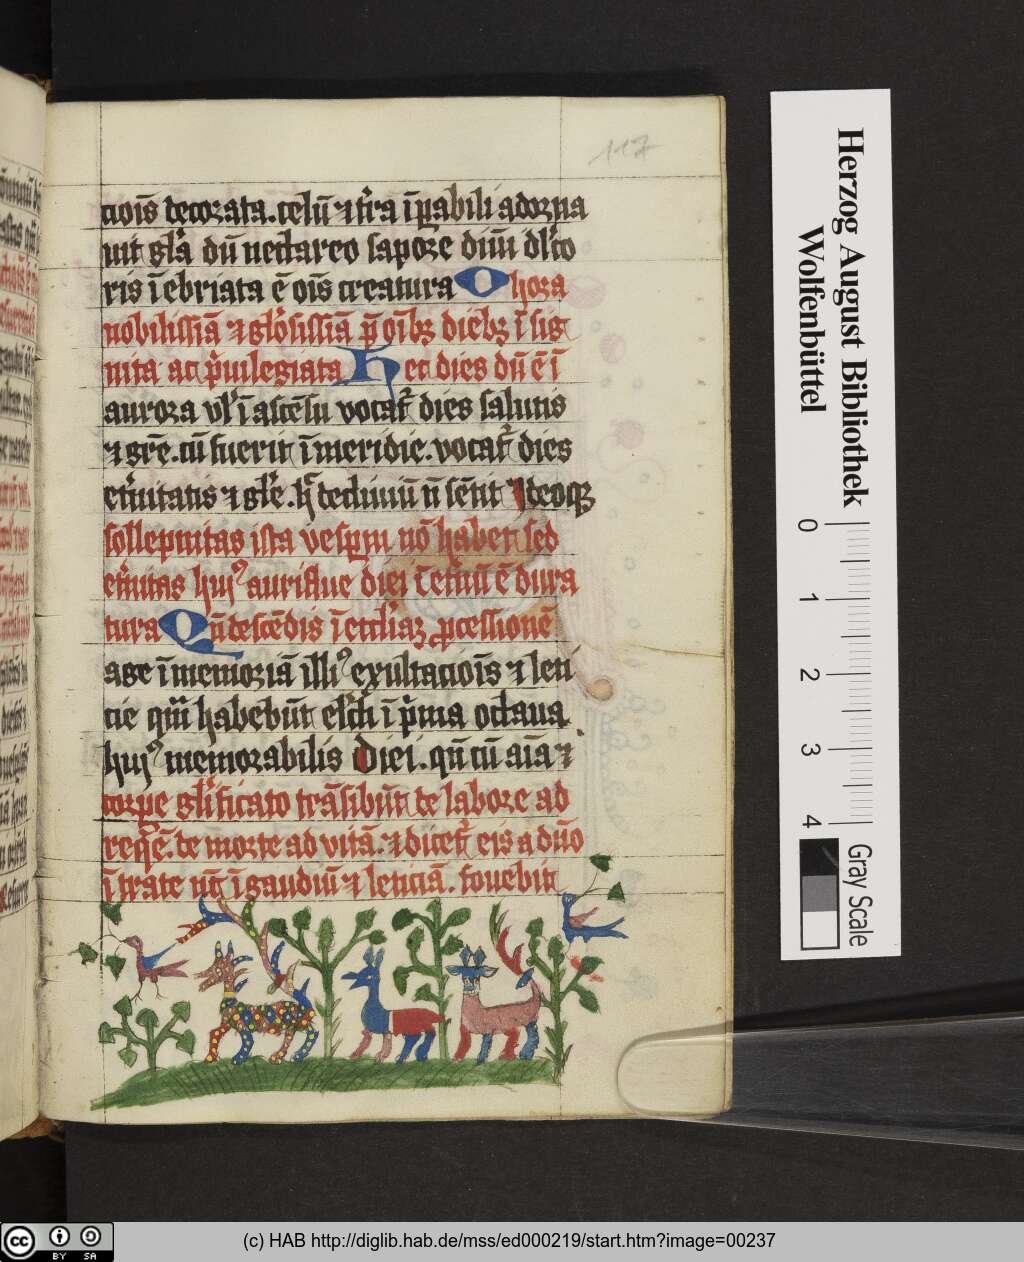 117
cioīs decorata. celū ⁊ t̾ra īpabili adorna
uit gl̾a dū nectareo sapore diui dl̾co
ris īebriata ē oīs creatura O hora
nobilissīa ⁊ gl̾osissīa p̄ oībꝫ diebꝫ ī sig
nita ac p̾uilegiata Hec dies dū ē ī
aurora vl̾ ī ascēsu vocat̾ dies salutis
⁊ gr̄e. cū fuerit ī meridie. vocat̾ dies
et̾nitatis ⁊ gl̾e. hͥ decliniū n̄ sētit Ideoqꝫ
sollepnitas ista vesꝑm nō habet sed
et̾nitas huiꝰ auriflue diei ī et̾nū ē dura
tura Qn̄ descēdis ī eccl̾iaꝝ ꝓcessionē
age ī memoriā illiꝰ exultacioīs ⁊ leti
cie quā habebūt el̾cti ī p̾ma octaua
huiꝰ memorabilis diei. qn̄ cū aīa ⁊
corꝑe gl̾ificato trāsibūt de labore ad
reqͥē. de morte ad vitā. ⁊ dicet̾ eis a dn̄o
ītrate ī gaudiū ⁊ leticiā. fouebit
Herzog August Bibliothek
Wolfenbüttel
0 1 2 3 4
Gray Scale
cc BY SA
(c) HAB http://diglib.hab.de/mss/ed000219/start.htm?image=00237